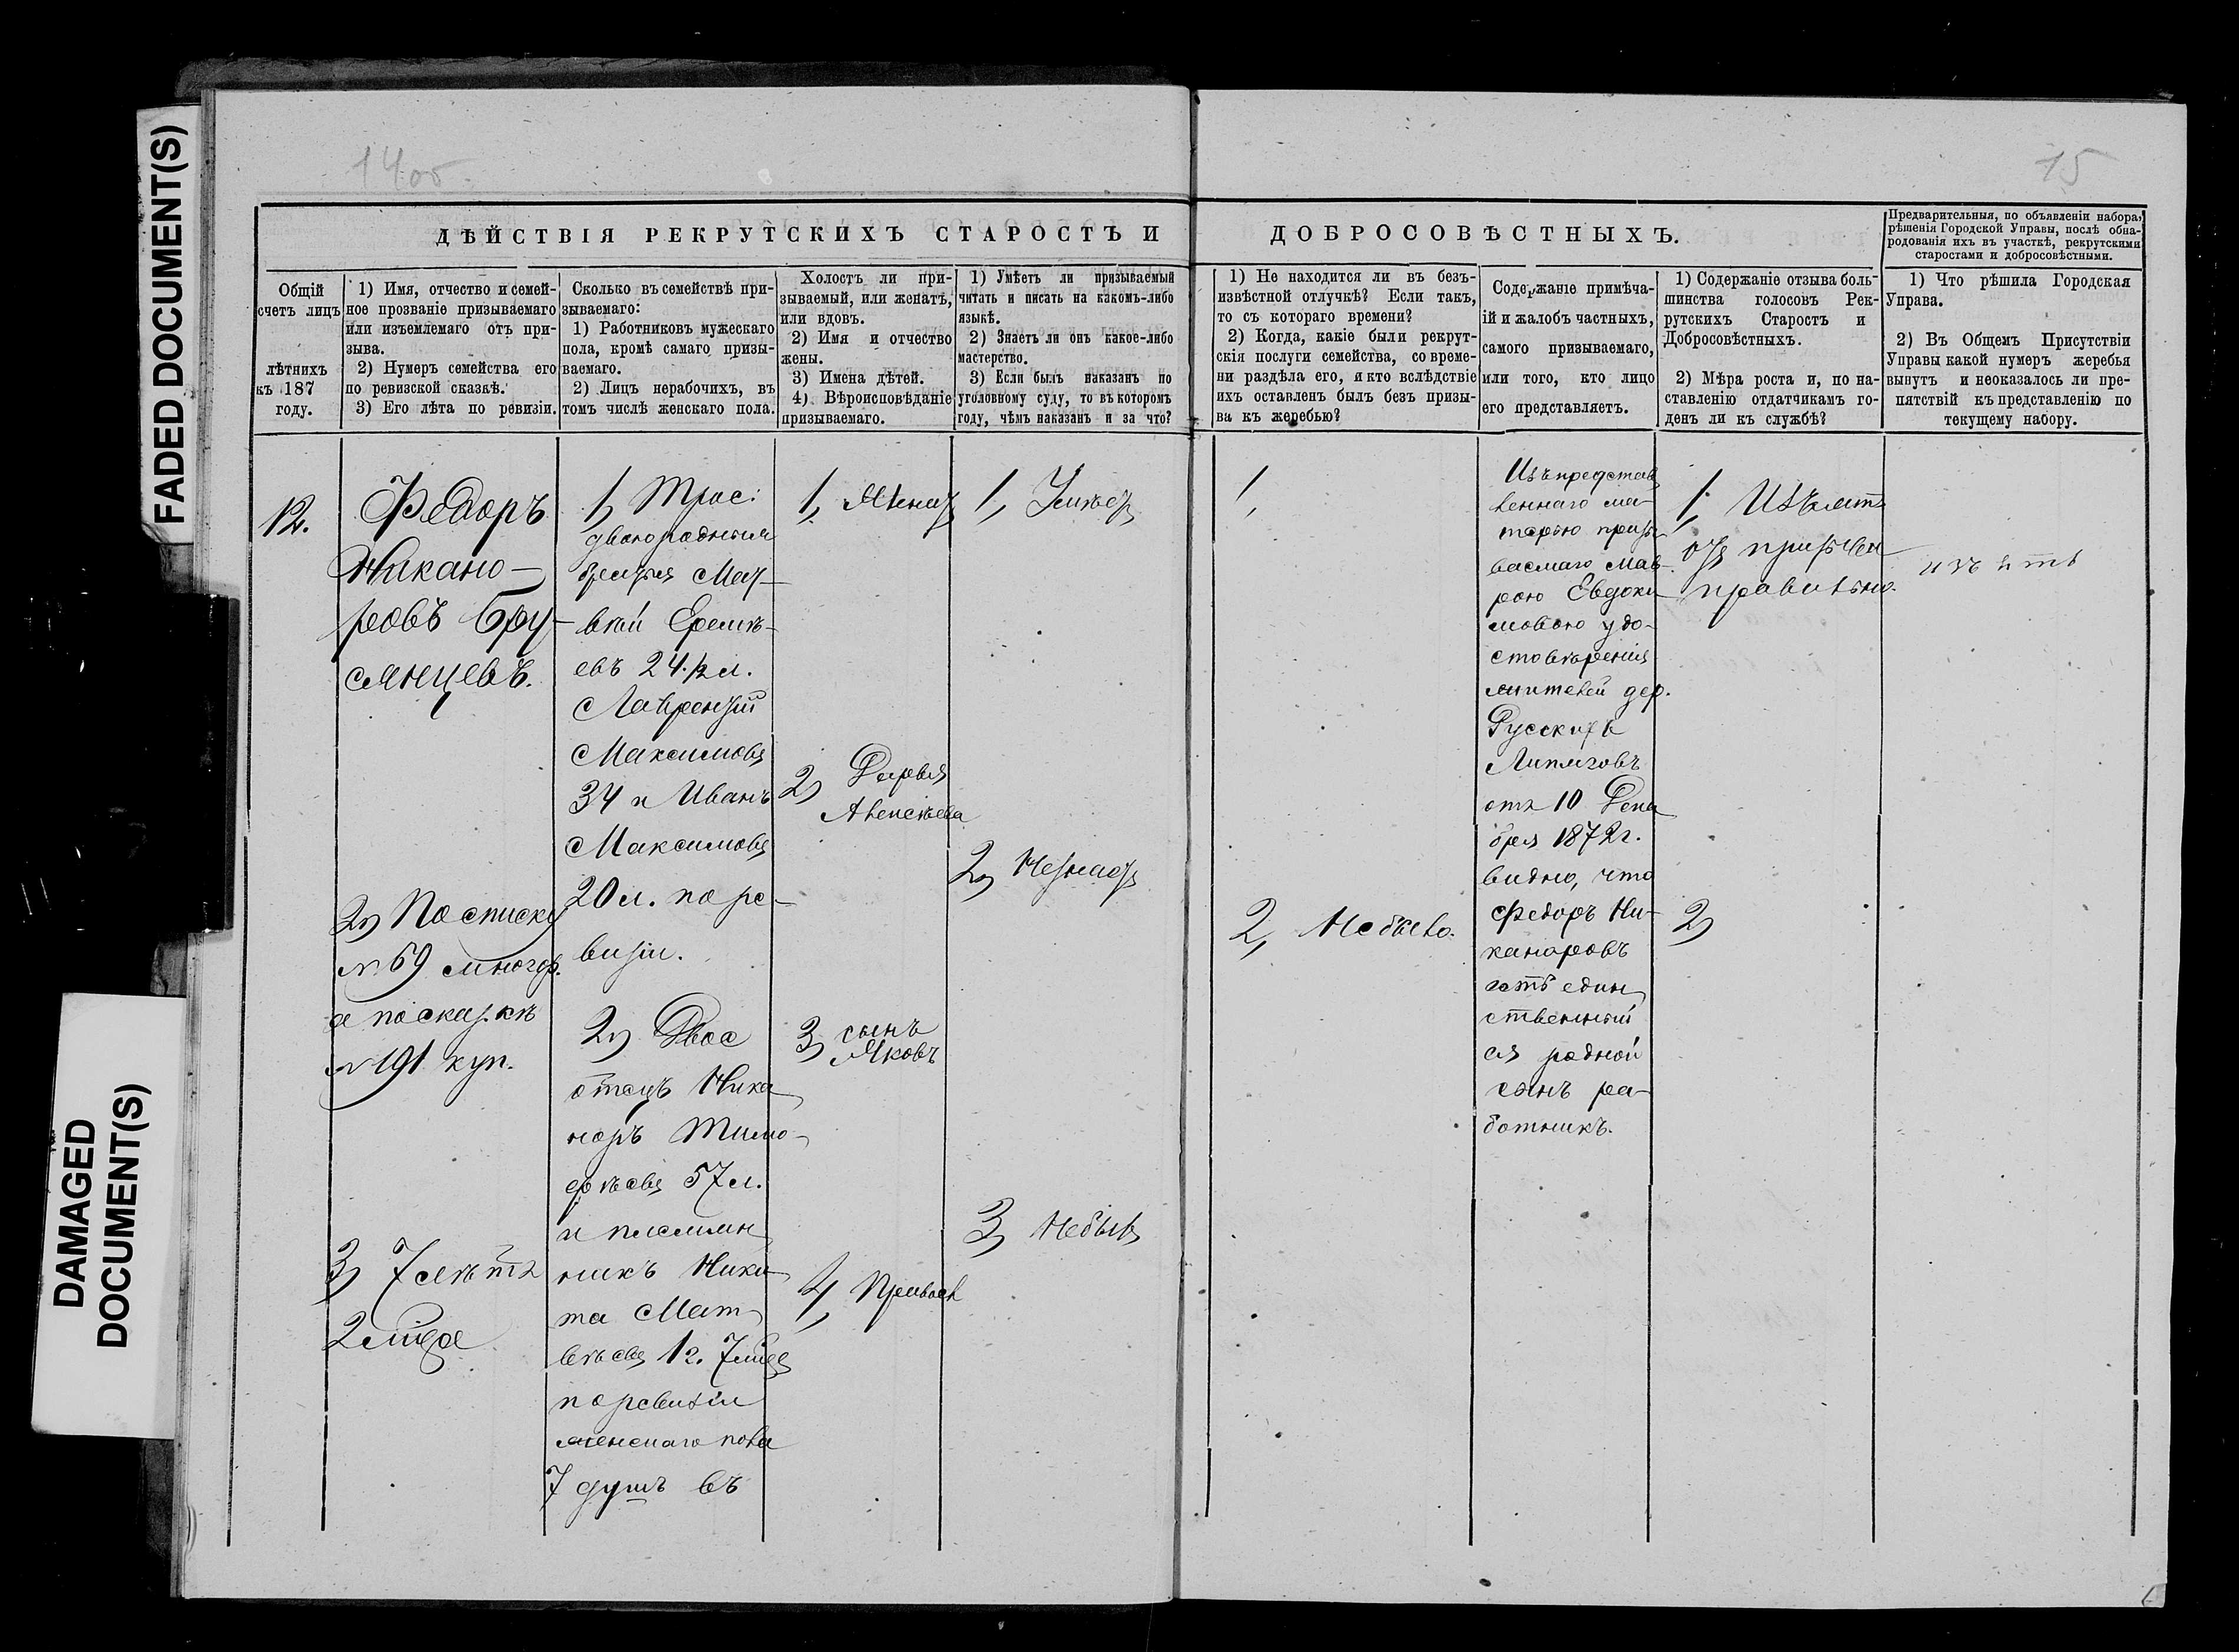 FADED DOCUMENT(S)
DAMAGED
DOCUMENT(S)
14 об.
15
ДѢЙСТВІЯ РЕКРУТСКИХЪ СТАРОСТЪ И
ДОБРОСОВѢСТНЫХЪ.
Предварительныя, по объявленіи набора,
рѣшенія Городской Управы, послѣ обна-
родованія ихъ въ участкѣ, рекрутскими
старостами и добросовѣстными.
Общій
счетъ лицъ
лѣтнихъ
къ 187
году.
1) Имя, отчество и семей-
ное прозваніе призываемаго
или изъемлемаго отъ при-
зыва.
2) Нумеръ семейства его
по ревизской сказкѣ.
3) Его лѣта по ревизіи.
Сколько въ семействѣ при-
зываемаго:
1) Работниковъ мужескаго
пола, кромѣ самаго призы-
ваемаго.
2) Лицъ нерабочихъ, въ
томъ числѣ женскаго пола.
Холостъ ли при-
зываемый, или женатъ,
или вдовъ.
2) Имя и отчество
жены.
3) Имена дѣтей.
4) Вѣроисповѣданіе
призываемаго.
1) Умѣетъ ли призываемый
читать и писать на какомъ-либо
языкѣ.
2) Знаетъ ли онъ какое-либо
мастерство.
3) Если былъ наказанъ по
уголовному суду, то въ которомъ
году, чѣмъ наказанъ и за что?
1) Не находится ли въ безъ-
извѣстной отлучкѣ? Если такъ,
то съ котораго времени?
2) Когда, какіе были рекрут-
скія послуги семейства, со време-
ни раздѣла его, и кто вслѣдствіе
ихъ оставленъ былъ безъ призы-
ва къ жеребью?
Содержаніе примѣча-
ій и жалобъ частныхъ,
самого призываемаго,
или того, кто лицо
его представляетъ.
1) Содержаніе отзыва боль-
шинства голосовъ Рек-
рутскихъ Старостъ и
Добросовѣстныхъ.
2) Мѣра роста и, по на-
ставленію отдатчикамъ го-
денъ ли къ службѣ?
1) Что рѣшила Городская
Управа.
2) Въ Общемъ Присутствіи
Управы какой нумеръ жеребья
вынутъ и неоказалось ли пре-
пятствій къ представленію по
текущему набору.
12.
Федоръ
Никано-
ровъ Бру-
сянцевъ.
2) По списку
№ 69
а по сказкѣ
№ 191 куп.
3) 7 лѣтъ
2 мѣся
1) Трое:
двоюродныя
братья Мат-
вѣй Еремѣ-
евъ 24 1/2 л.
Лаврентій
Максимовъ
34 и Иванъ
Максимовъ
20 л. по ре-
визіи.
2) Двое
отецъ Ника
норъ Тимо-
фѣевъ 57 л.
и племян
никъ Ники
та Мат
вѣевъ 12. 7 мѣс
по ревизіи
женскаго пола
7 душъ въ
1) Женатъ
2) Дарья
Алексѣева
3) сынъ
Яковъ
4) Правосл
1) Умѣетъ
2) Незнаетъ
3) Небылъ
1)
2) Небыло.
Изъ представ
леннаго ма-
терью призы
ваемаго Мав-
рою Евдоки-
мовою удо-
стовѣренія
жителей дер.
Русскихъ
Липяговъ
отъ 10 Дека
бря 1872 г.
видно, что
Федоръ Ни-
каноровъ
есть един
ственный
ея родной
сынъ ра-
ботникъ.
1) Изъятъ
отъ призыва
правильно.
2)
изъять